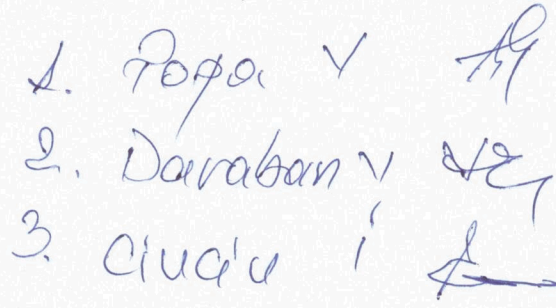 1. Popa V
2. Daraban V
3. Ciuciu I